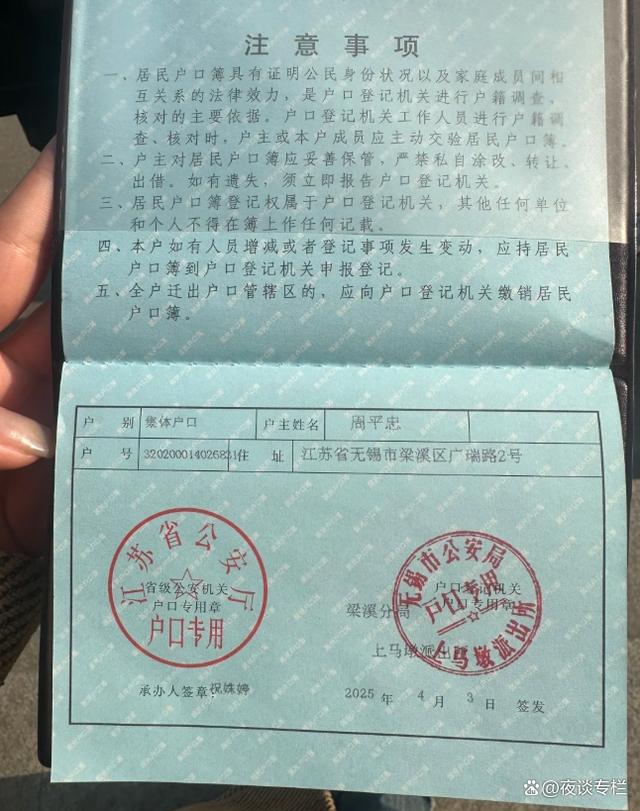 注意事项
一、居民户口簿具有证明公民身份状况以及家庭成员间相
互关系的法律效力，是户口登记机关进行户籍调查、
核对的主要依据。户口登记机关工作人员进行户籍调
查、核对时，户主或本户成员应主动交验居民户口簿。
二、户主对居民户口簿应妥善保管，严禁私自涂改、转让、
出借。如有遗失，须立即报告户口登记机关。
三、居民户口簿登记权属于户口登记机关，其他任何单位
和个人不得在簿上作任何记载。
四、本户如有人员增减或者登记事项发生变动，应持居民
户口簿到户口登记机关申报登记。
五、全户迁出户口管辖区的，应向户口登记机关缴销居民
户口簿。
户 别 集体户口 户主姓名 周平忠
户 号 320200014026831 住 址 江苏省无锡市梁溪区广瑞路2号
江苏省公安厅
省级公安机关
户口专用章
户口专用
无锡市公安局
户口专用
上马墩派出所
户口登记机关
户口专用章
梁溪分局
上马墩派出所
承办人签章：祝姝婷
2025 年 4 月 3 日 签发
@夜谈专栏